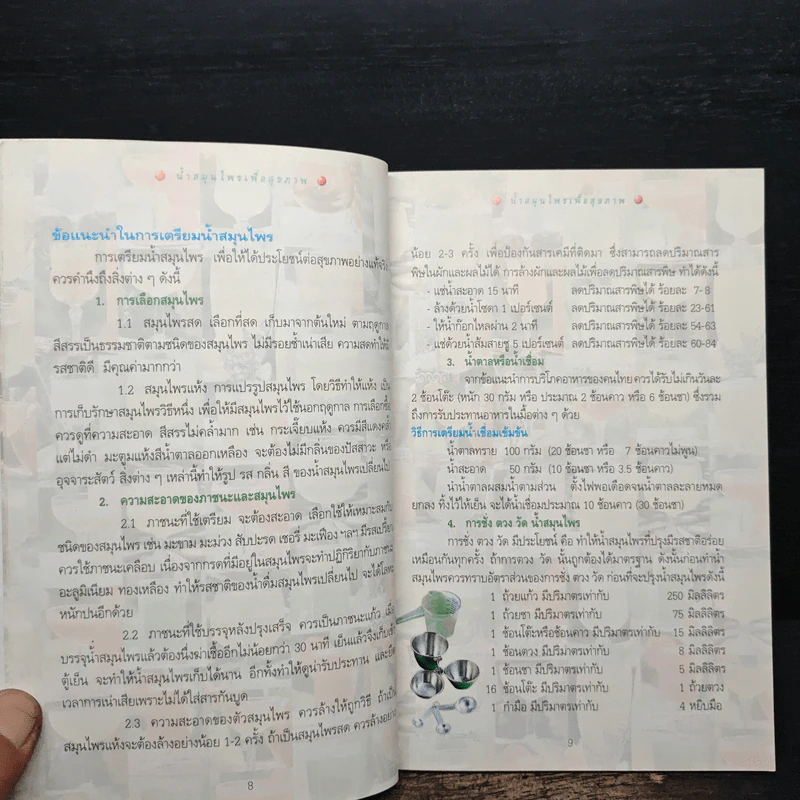 น้ำสมุนไพรเพื่อสุขภาพ
ข้อแนะนำในการเตรียมน้ำสมุนไพร
การเตรียมน้ำสมุนไพร เพื่อให้ได้ประโยชน์ต่อสุขภาพอย่างแท้จริง
ควรคำนึงถึงสิ่งต่าง ๆ ดังนี้
1. การเลือกสมุนไพร
1.1 สมุนไพรสด เลือกที่สด เก็บมาจากต้นใหม่ ตามฤดูกาล
สีสรรเป็นธรรมชาติตามชนิดของสมุนไพร ไม่มีรอยช้ำเน่าเสีย ความสดทำให้มี
รสชาติดี มีคุณค่ามากกว่า
1.2 สมุนไพรแห้ง การแปรรูปสมุนไพร โดยวิธีทำให้แห้ง เป็น
การเก็บรักษาสมุนไพรวิธีหนึ่ง เพื่อให้มีสมุนไพรไว้ใช้นอกฤดูกาล การเลือกซื้อ
ควรดูที่ความสะอาด สีสรรไม่คล้ำมาก เช่น กระเจี๊ยบแห้ง ควรมีสีแดงคล้ำ
แต่ไม่ดำ มะตูมแห้งสีน้ำตาลออกเหลือง จะต้องไม่มีกลิ่นของปัสสาวะ หรือ
อุจจาระสัตว์ สิ่งต่าง ๆ เหล่านี้ทำให้รูป รส กลิ่น สี ของน้ำสมุนไพรเปลี่ยนไป
2. ความสะอาดของภาชนะและสมุนไพร
2.1 ภาชนะที่ใช้เตรียม จะต้องสะอาด เลือกใช้ให้เหมาะสมกับ
ชนิดของสมุนไพร เช่น มะขาม มะม่วง สับปะรด เชอรี่ มะเฟือง ฯลฯ มีรสเปรี้ยว
ควรใช้ภาชนะเคลือบ เนื่องจากกรดที่มีอยู่ในสมุนไพรจะทำปฏิกิริยากับภาชนะ
อะลูมิเนียม ทองเหลือง ทำให้รสชาติของน้ำดื่มสมุนไพรเปลี่ยนไป จะได้โลหะ
หนักปนอีกด้วย
2.2 ภาชนะที่ใช้บรรจุหลังปรุงเสร็จ ควรเป็นภาชนะแก้ว เมื่อ
บรรจุน้ำสมุนไพรแล้วต้องนึ่งฆ่าเชื้ออีกไม่น้อยกว่า 30 นาที เย็นแล้วจึงเก็บเข้า
ตู้เย็น จะทำให้น้ำสมุนไพรเก็บได้นาน อีกทั้งทำให้ดูน่ารับประทาน และยืด
เวลาการเน่าเสียเพราะไม่ได้ใส่สารกันบูด
2.3 ความสะอาดของตัวสมุนไพร ควรล้างให้ถูกวิธี ถ้าเป็น
สมุนไพรแห้งจะต้องล้างอย่างน้อย 1-2 ครั้ง ถ้าเป็นสมุนไพรสด ควรล้างอย่าง
8
น้ำสมุนไพรเพื่อสุขภาพ
น้อย 2-3 ครั้ง เพื่อป้องกันสารเคมีที่ติดมา ซึ่งสามารถลดปริมาณสาร
พิษในผักและผลไม้ได้ การล้างผักและผลไม้เพื่อลดปริมาณสารพิษ ทำได้ดังนี้
- แช่น้ำสะอาด 15 นาที ลดปริมาณสารพิษได้ ร้อยละ 7-8
- ล้างด้วยน้ำโซดา 1 เปอร์เซนต์ ลดปริมาณสารพิษได้ ร้อยละ 23-61
- ให้น้ำก๊อกไหลผ่าน 2 นาที ลดปริมาณสารพิษได้ ร้อยละ 54-63
- แช่ด้วยน้ำส้มสายชู 5 เปอร์เซนต์ ลดปริมาณสารพิษได้ ร้อยละ 60-84
3. น้ำตาลหรือน้ำเชื่อม
จากข้อแนะนำการบริโภคอาหารของคนไทย ควรได้รับไม่เกินวันละ
2 ช้อนโต๊ะ (หนัก 30 กรัม หรือ ประมาณ 2 ช้อนคาว หรือ 6 ช้อนชา) ซึ่งรวม
ถึงการรับประทานอาหารในมื้อต่าง ๆ ด้วย
วิธีการเตรียมน้ำเชื่อมเข้มข้น
น้ำตาลทราย 100 กรัม (20 ช้อนชา หรือ 7 ช้อนคาวไม่พูน)
น้ำสะอาด 50 กรัม (10 ช้อนชา หรือ 3.5 ช้อนคาว)
นำน้ำตาลผสมน้ำตามส่วน ตั้งไฟพอเดือดจนน้ำตาลละลายหมด
ยกลง ทิ้งไว้ให้เย็น จะได้น้ำเชื่อมประมาณ 10 ช้อนคาว (30 ช้อนชา)
4. การชั่ง ตวง วัด น้ำสมุนไพร
การชั่ง ตวง วัด มีประโยชน์ คือ ทำให้น้ำสมุนไพรที่ปรุงมีรสชาติอร่อย
เหมือนกันทุกครั้ง ถ้าการตวง วัด นั้นถูกต้องได้มาตรฐาน ดังนั้นก่อนทำน้ำ
สมุนไพรควรทราบอัตราส่วนของการชั่ง ตวง วัด ก่อนที่จะปรุงน้ำสมุนไพรดังนี้
1 ถ้วยแก้ว มีปริมาตรเท่ากับ 250 มิลลิลิตร
1 ถ้วยชา มีปริมาตรเท่ากับ 75 มิลลิลิตร
1 ช้อนโต๊ะหรือช้อนคาว มีปริมาตรเท่ากับ 15 มิลลิลิตร
1 ช้อนตวง มีปริมาตรเท่ากับ 8 มิลลิลิตร
1 ช้อนชา มีปริมาตรเท่ากับ 5 มิลลิลิตร
16 ช้อนโต๊ะ มีปริมาตรเท่ากับ 1 ถ้วยตวง
1 กำมือ มีปริมาตรเท่ากับ 4 หยิบมือ
9